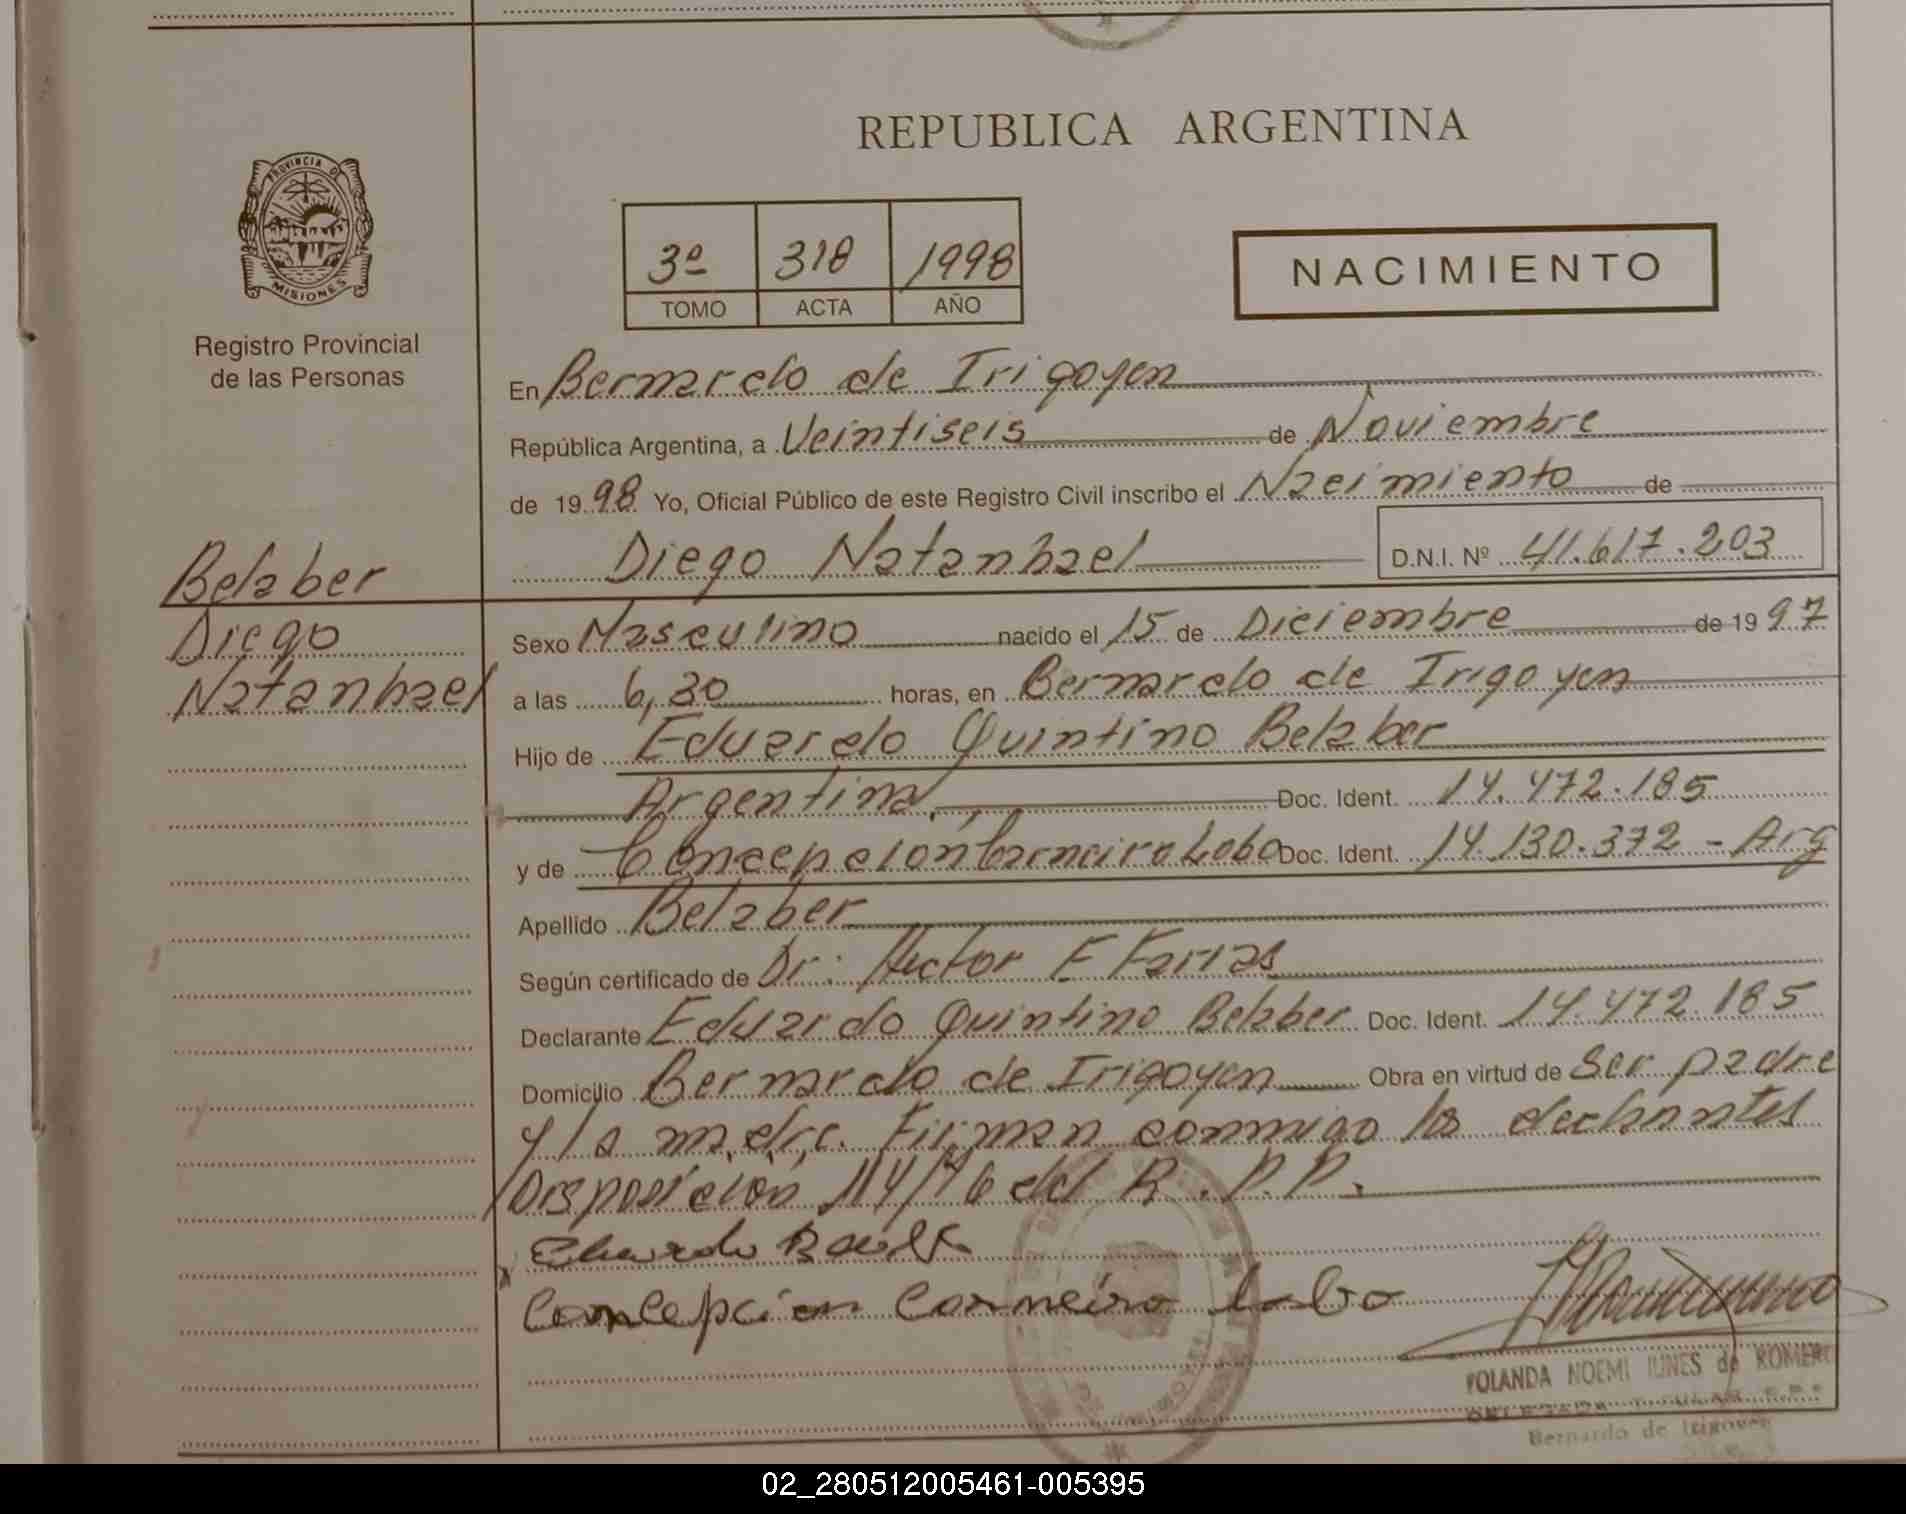 REPUBLICA ARGENTINA
PROVINCIA D
MISIONES
Registro Provincial
de las Personas
3º 318 1998
TOMO ACTA AÑO
NACIMIENTO
En Bernardo de Irigoyen
República Argentina, a Veintiseis de Noviembre
de 1998 Yo, Oficial Público de este Registro Civil inscribo el Nacimiento de
Diego Natanhael D.N.I. Nº 41.617.203
Belaber
Diego
Natanhael
Sexo Masculino nacido el 15 de Diciembre de 1997
a las 6,30 horas, en Bernardo de Irigoyen
Hijo de Eduardo Quintino Belaber
Argentina, Doc. Ident. 14.472.185
y de Concepcion Carneiro Lobo Doc. Ident. 14.130.372 - Arg
Apellido Belaber
Según certificado de Dr: Hector E Farias
Declarante Eduardo Quintino Belaber Doc. Ident. 14.472.185
Domicilio Bernardo de Irigoyen Obra en virtud de Ser padre
y la madre. Firman conmigo los declarantes
Disposición 114/76 del R.P.P.
Eduardo
Concepcion Carneiro Lobo
YOLANDA NOEMI IUNES de ROMERO
Bernardo de Irigoyen
02_280512005461-005395